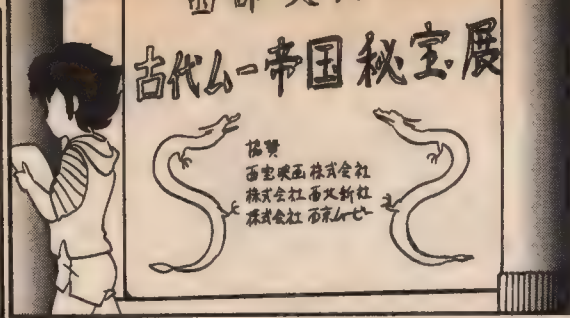 古代ムー帝国秘宝展
協賛
西宝映画株式会社
株式会社西北新社
株式会社西京ムービー